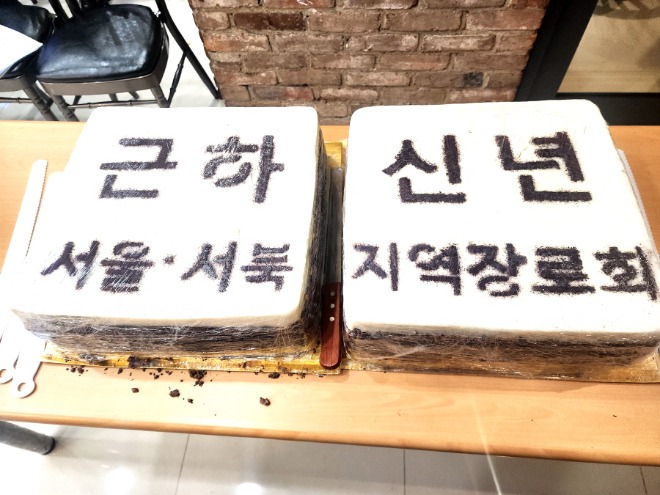 근하 신년
서울·서북 지역장로회